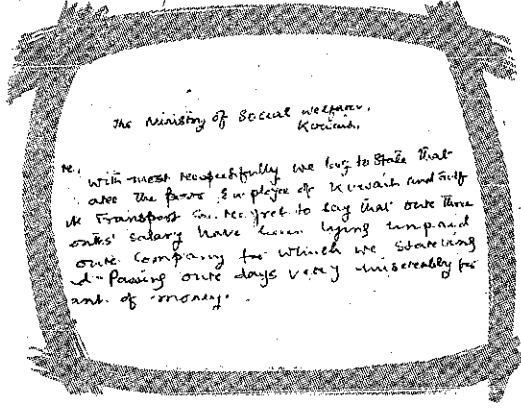 The Ministry of Social Welfare,
Kuwait.
With most respectfully we beg to State that
are the poor Employee of Kuwait and Gulf
Transport Co. regret to say that our three
salary have been lying unpaid
our Company for which we Starving
Passing our days very miserably for
ant. of money.